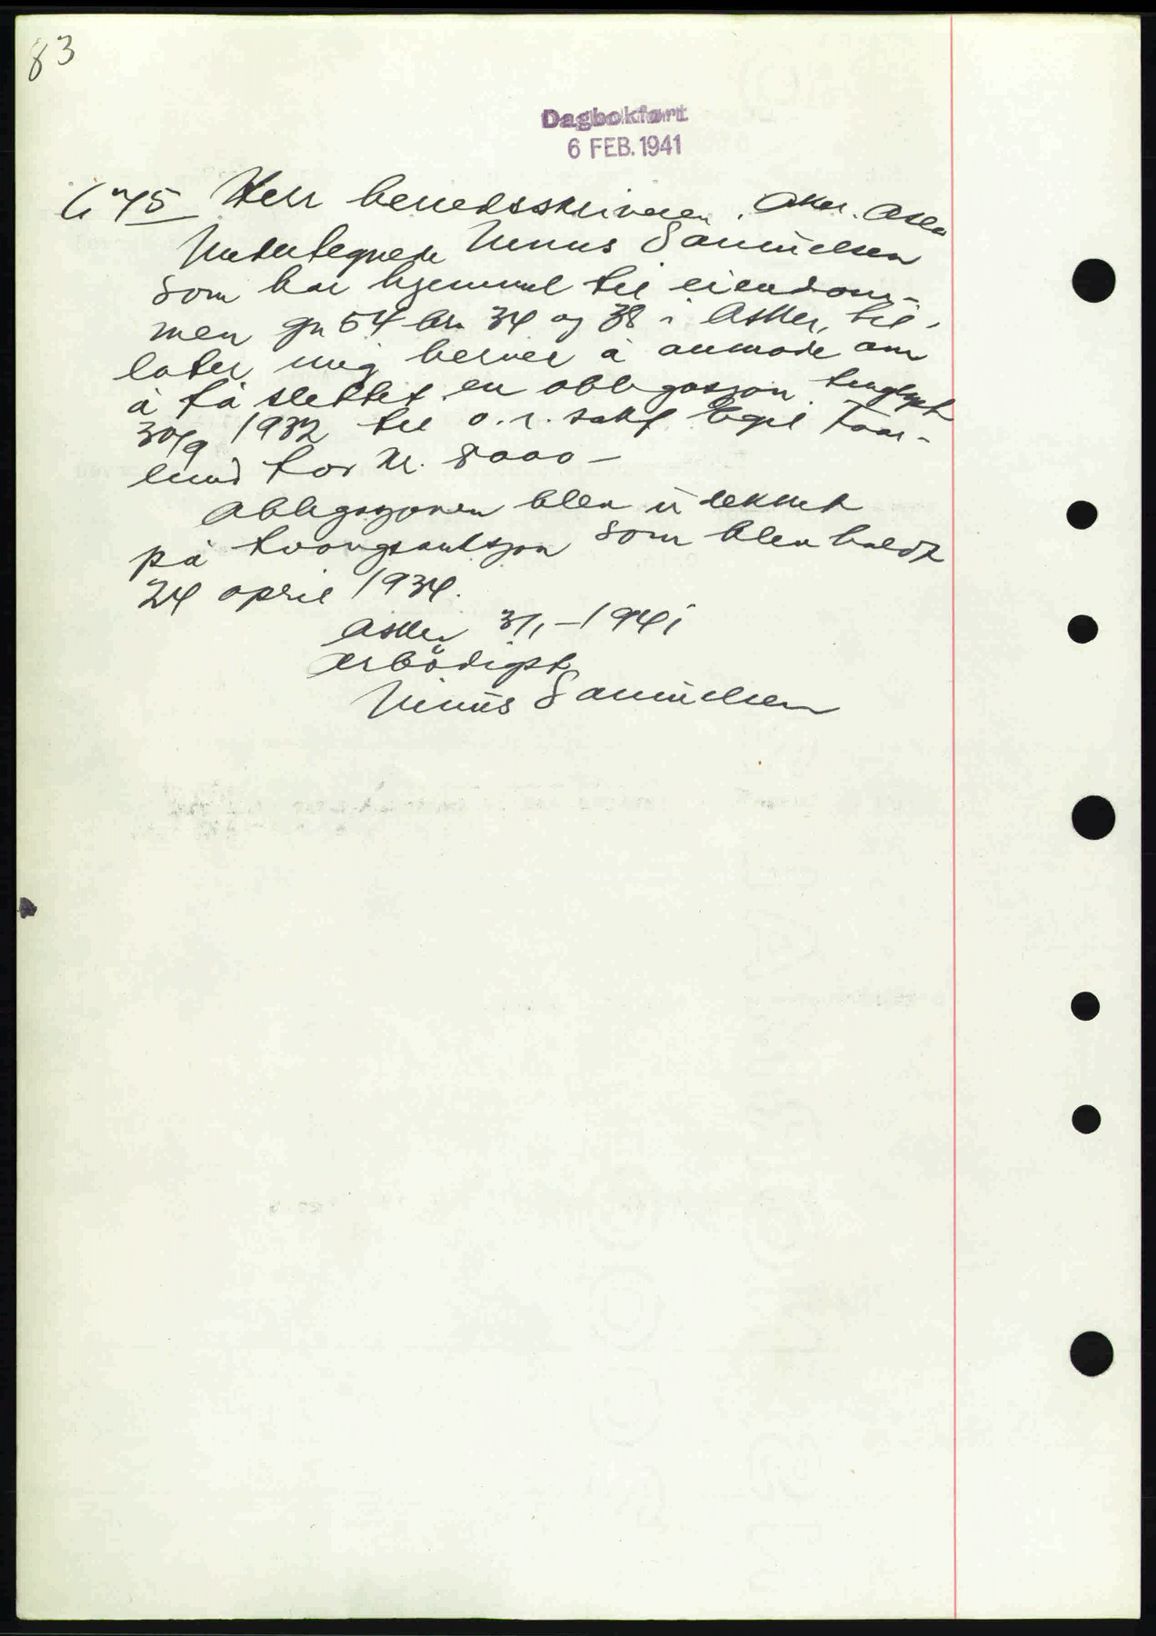 83
Dagbokført
6 FEB. 1941
675 Herr herredsskriveren, Aker. Asker
Undertegnede Samuelsen
som har hjemmel til eiendom-
men gn 54 bn 34 og 38 i Asker, til-
later mig herved å anmode om
å få slettet en obligasjon tinglyst
30/9 1932 til o.r. sakf. Egil Taar-
lund for kr. 8000 –
Obligasjonen blev udekket
på tvangsauksjon som blev holdt
24 april 1934.
Asker 3/1 – 1941
ærbödigst
Samuelsen